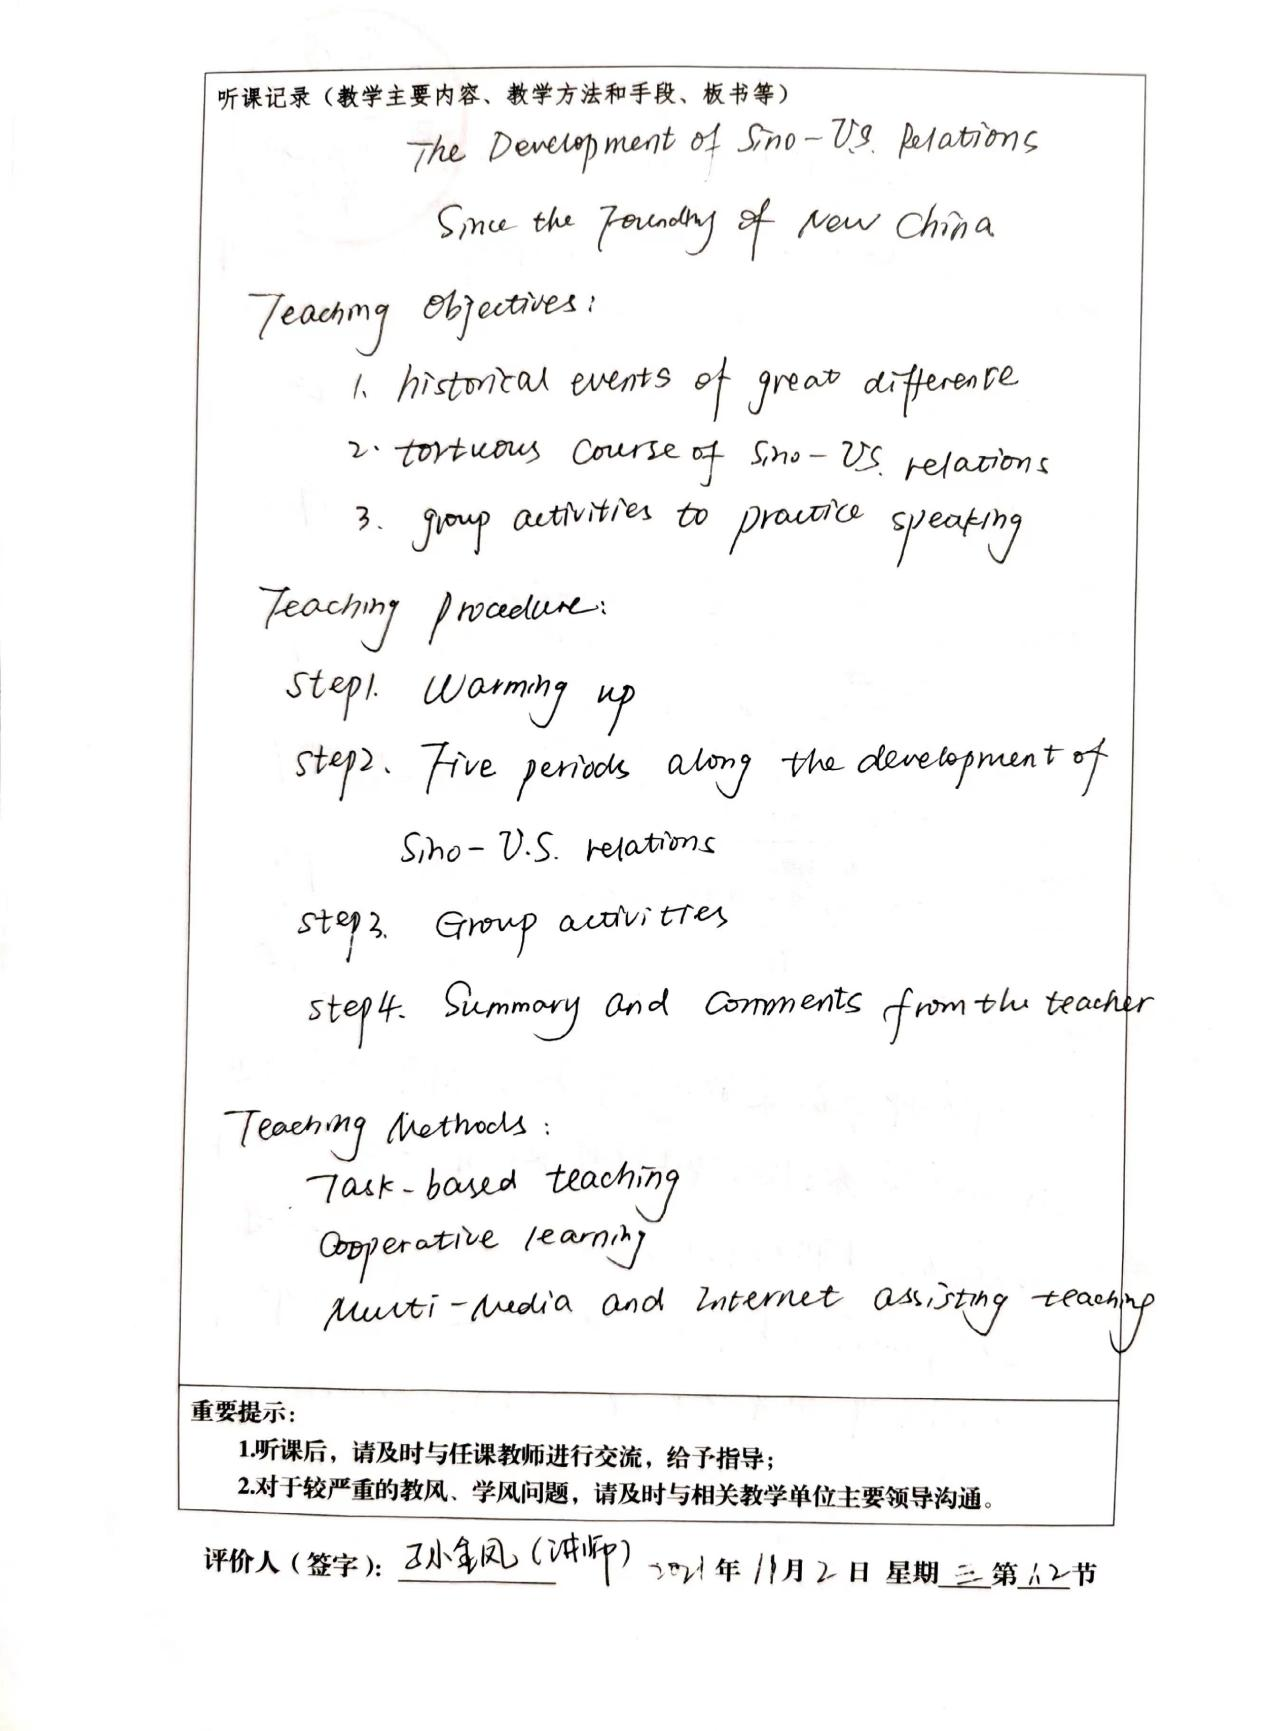 听课记录（教学主要内容、教学方法和手段、板书等）
The Development of Sino-U.S. Relations
Since the Founding of New China
Teaching Objectives:
1. historical events of great difference
2. tortuous course of Sino-U.S. relations
3. group activities to practice speaking
Teaching Procedure:
Step1. Warming up
Step2. Five periods along the development of
Sino-U.S. relations
Step3. Group activities
Step4. Summary and comments from the teacher
Teaching Methods:
Task-based teaching
Cooperative learning
Multi-Media and Internet assisting teaching
重要提示:
1.听课后，请及时与任课教师进行交流，给予指导；
2.对于较严重的教风、学风问题，请及时与相关教学单位主要领导沟通。
评价人（签字）: 孙金凤（讲师） 2021年11月2日 星期三第1.2节